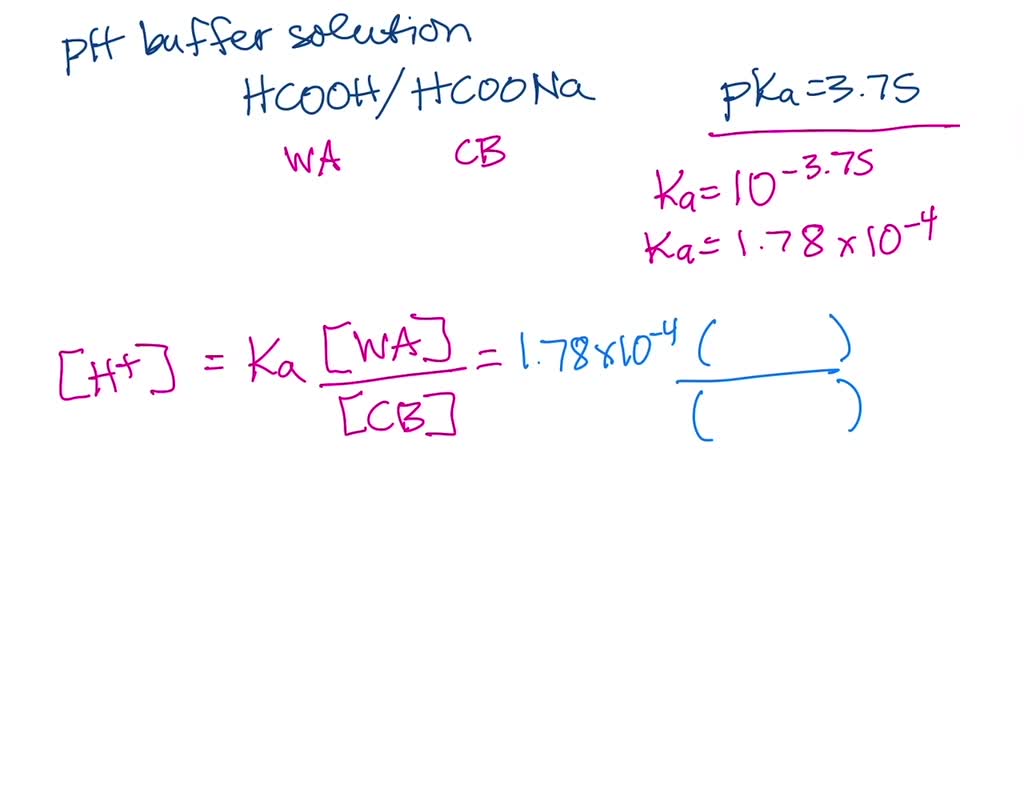 pH buffer solution
HCOOH/HCOONa pKa=3.75
WA CB
Ka=10^-3.75
Ka=1.78x10^-4
[H+] = Ka [WA]/[CB] = 1.78x10^-4 ( )/( )